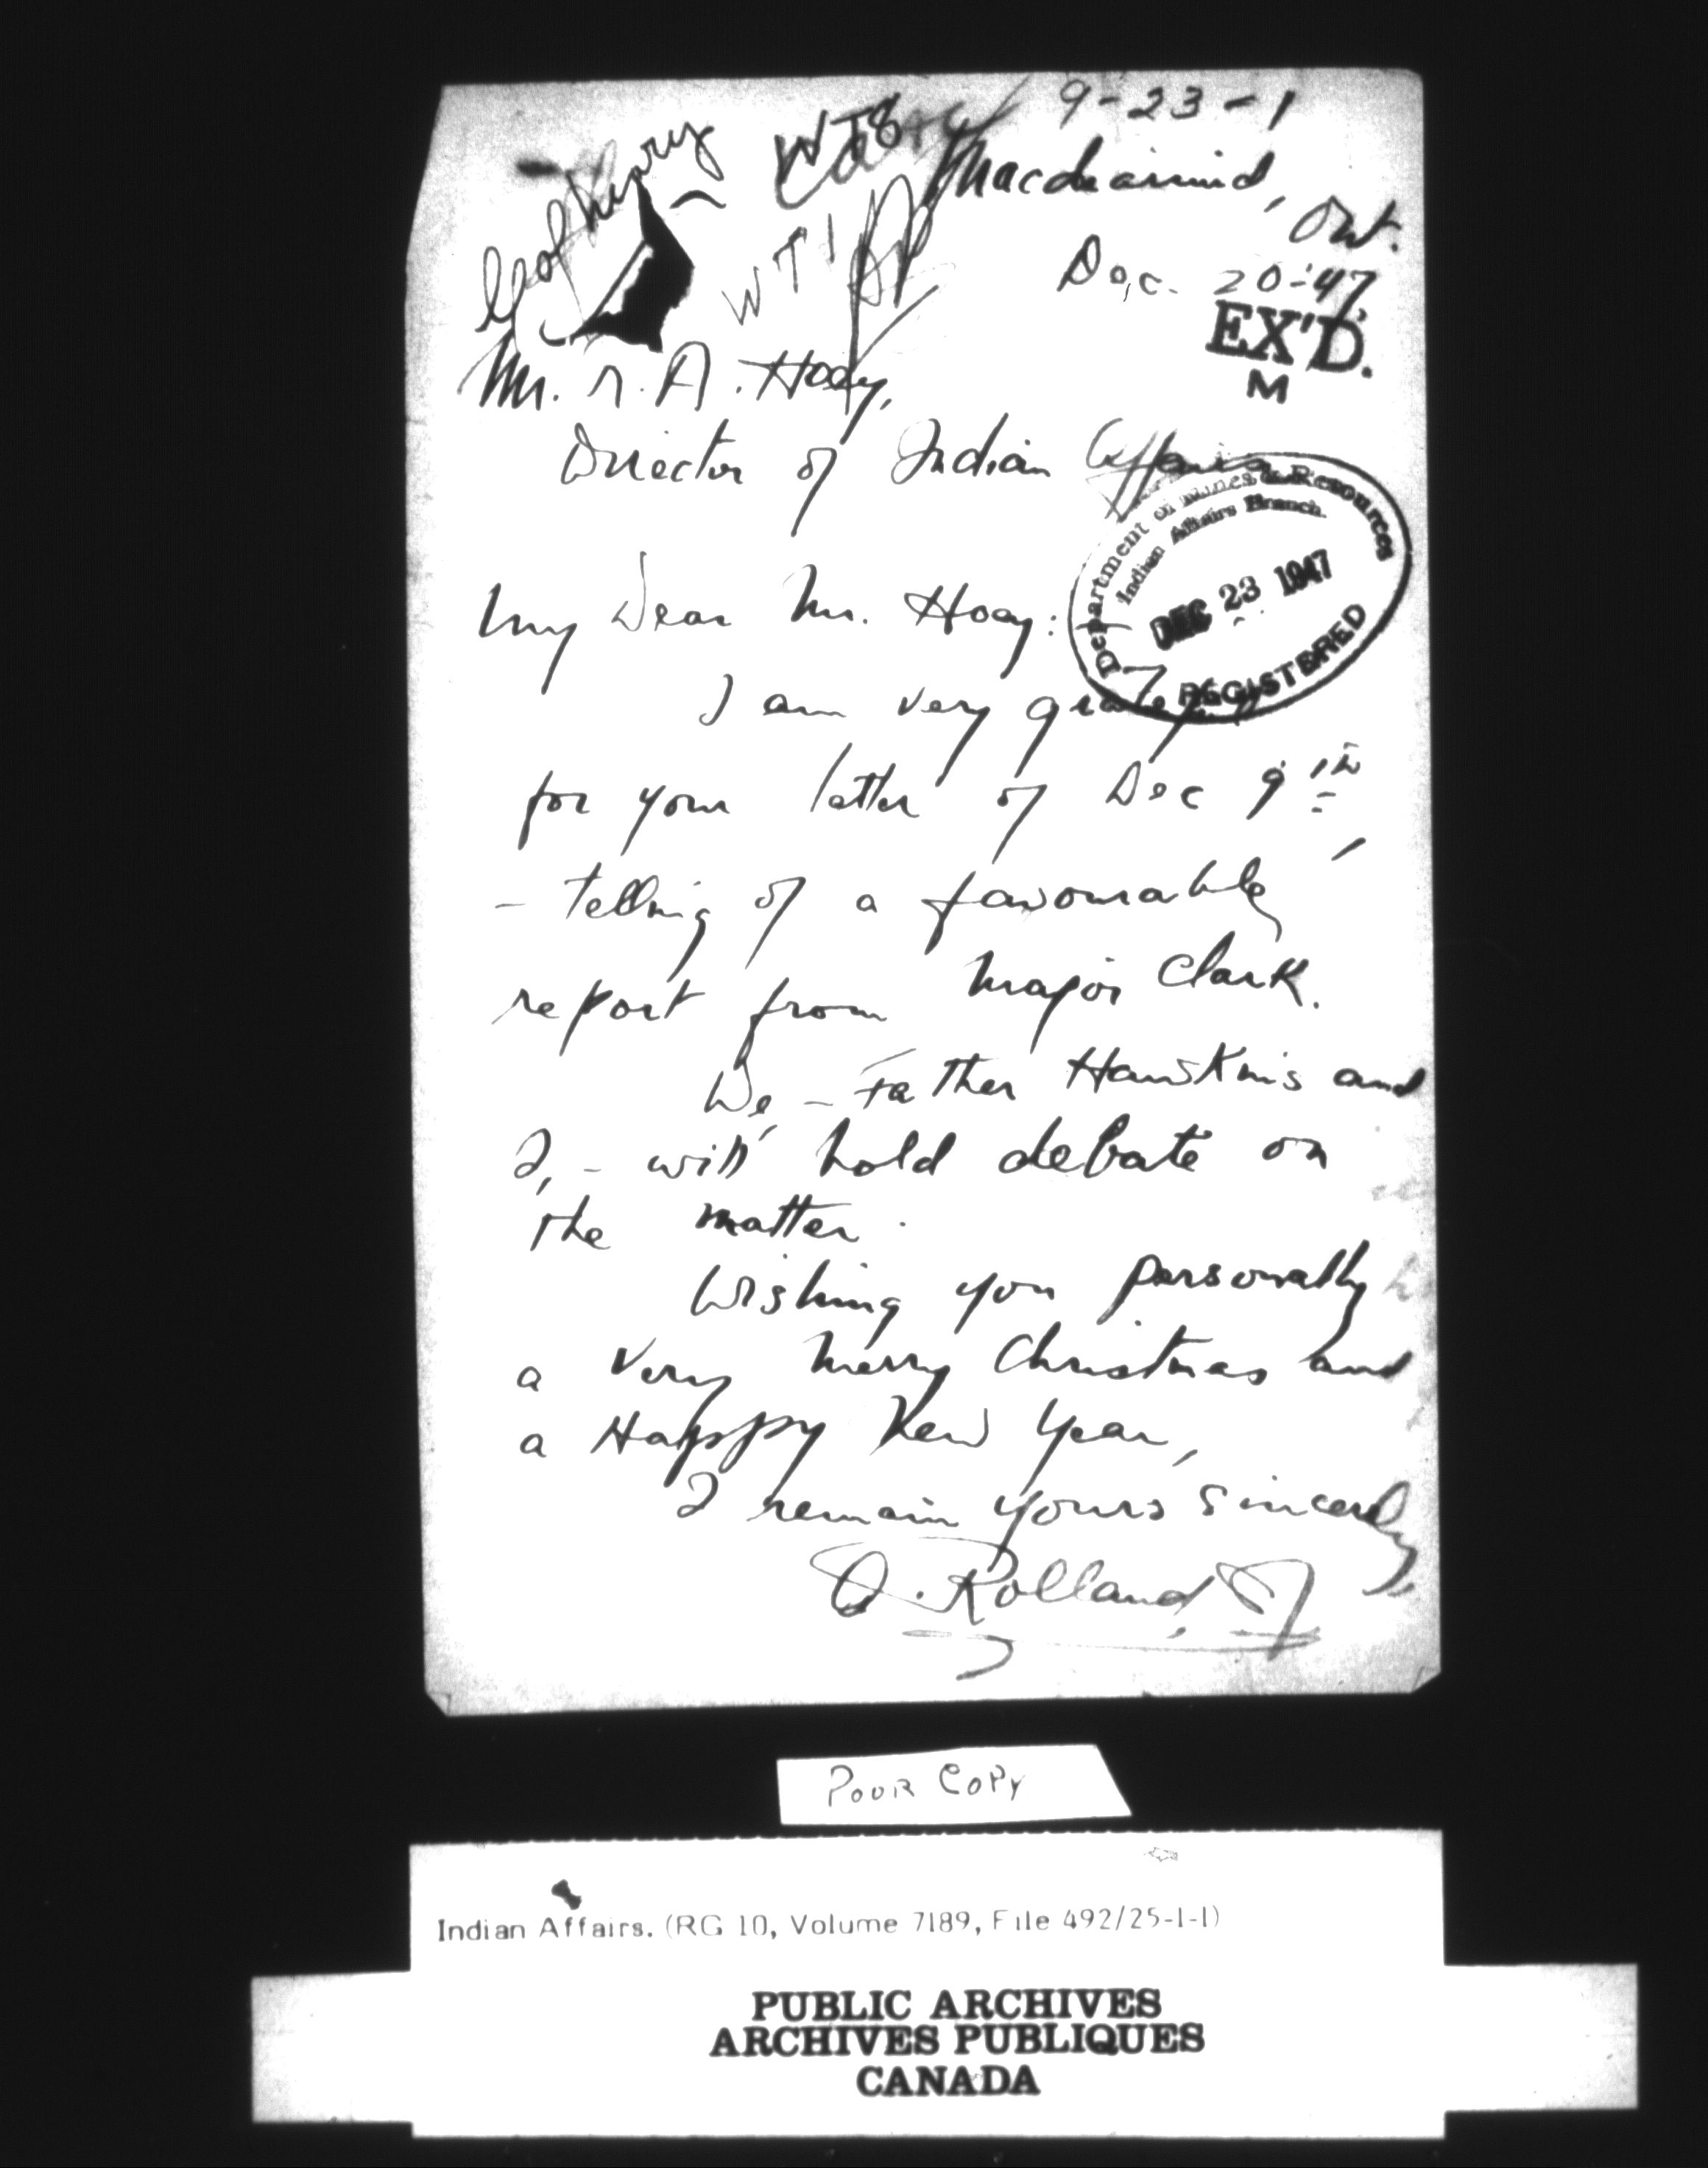 9-23-1
Macdiarmid,
Ont.
Dec. 20-'47,
EX'D.
M
WT8
WT1
Mr. R. A. Hoey,
Director of Indian Affairs
Department of Mines & Resources
Indian Affairs Branch.
DEC 23 1947
REGISTERED
My Dear Mr. Hoey:
I am very grateful
for your letter of Dec 9th,
- telling of a favourable
report from Major Clark.
We - Father Hawkins and
I, - will hold debate on
the matter.
Wishing you personally
a very Merry Christmas and
a Happy New Year,
I remain yours sincerely,
O. Rolland, SJ
POUR COPY
Indian Affairs. (RG 10, Volume 7189, File 492/25-1-1)
PUBLIC ARCHIVES
ARCHIVES PUBLIQUES
CANADA